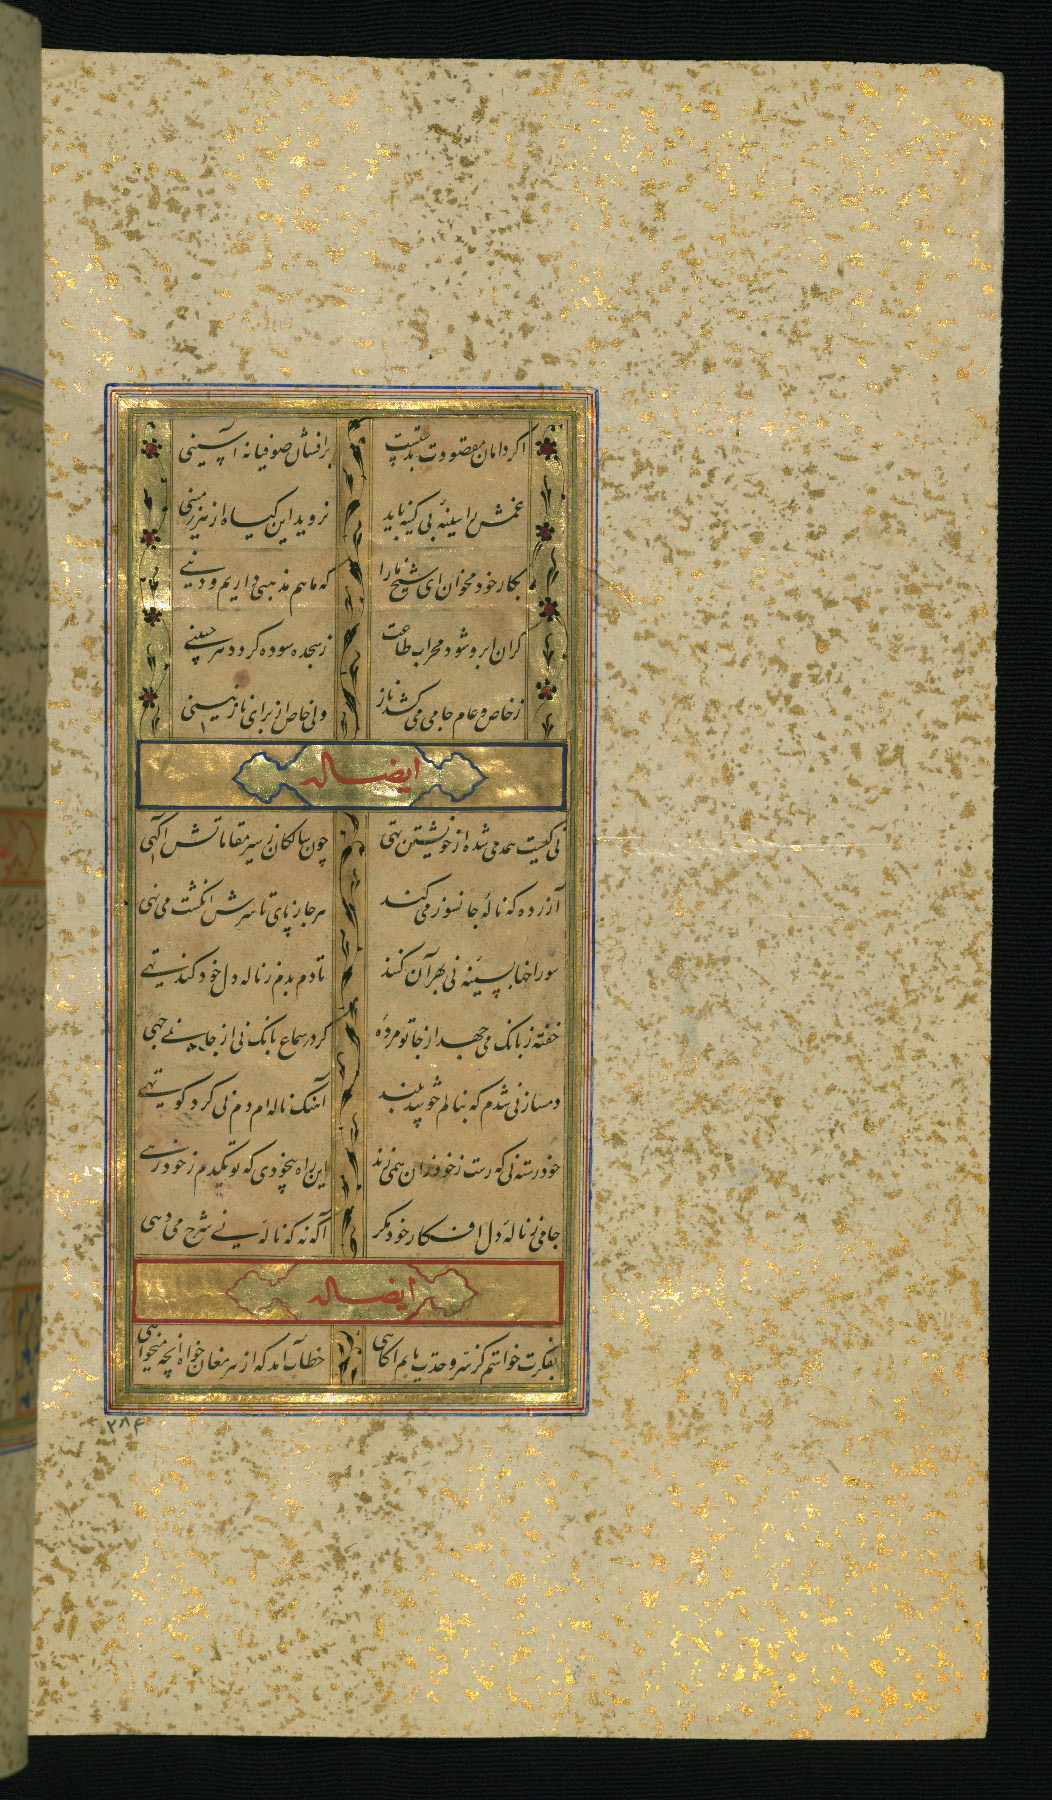 اگر دامان مقصودت بدستست برافشان صوفیانه آستینی
غمش را سینهٔ بی کینه باید نروید این گیاه از هر زمینی
بکار خود مخوان ای شیخ ما را که ما هم مذهبی داریم و دینی
گر آن ابرو شود محراب طاعت ز سجده سوده گردد هر جبینی
ز خاص و عام جامی می کشد ناز ولی خاص از برای نازنینی
ایضا له
نی کیست همدمی شده از خویشتن تهی چون سالکان ز سیر مقاماتش آگهی
آزرده که نالهٔ جانسوز می کند هر جا ز پای تا سرش انگشت می نهی
سوراخها بسینهٔ نی بهر آن کنند تا دم بدم ز ناله دل خود کند تهی
خفته ز بانگ می جهد از جا تو مرده گر در سماع بانگ نی از جای نجهی
دمساز نی شدم که بنالم چو پی برند آهنگ ناله ام دم نی کرد کوتهی
خود رسته نی که رست ز خود زان همی زند این راه بیخودی که تو یکدم ز خود رهی
جامی ز نالهٔ دل افکار خود مگر آگه نه که نالهٔ نی شرح می دهی
ایضا له
بفکرت خواستم کز سر وحدت یابم آگاهی خطاب آمد که از پیر مغان خواه آنچه میخواهی
۲۸۴